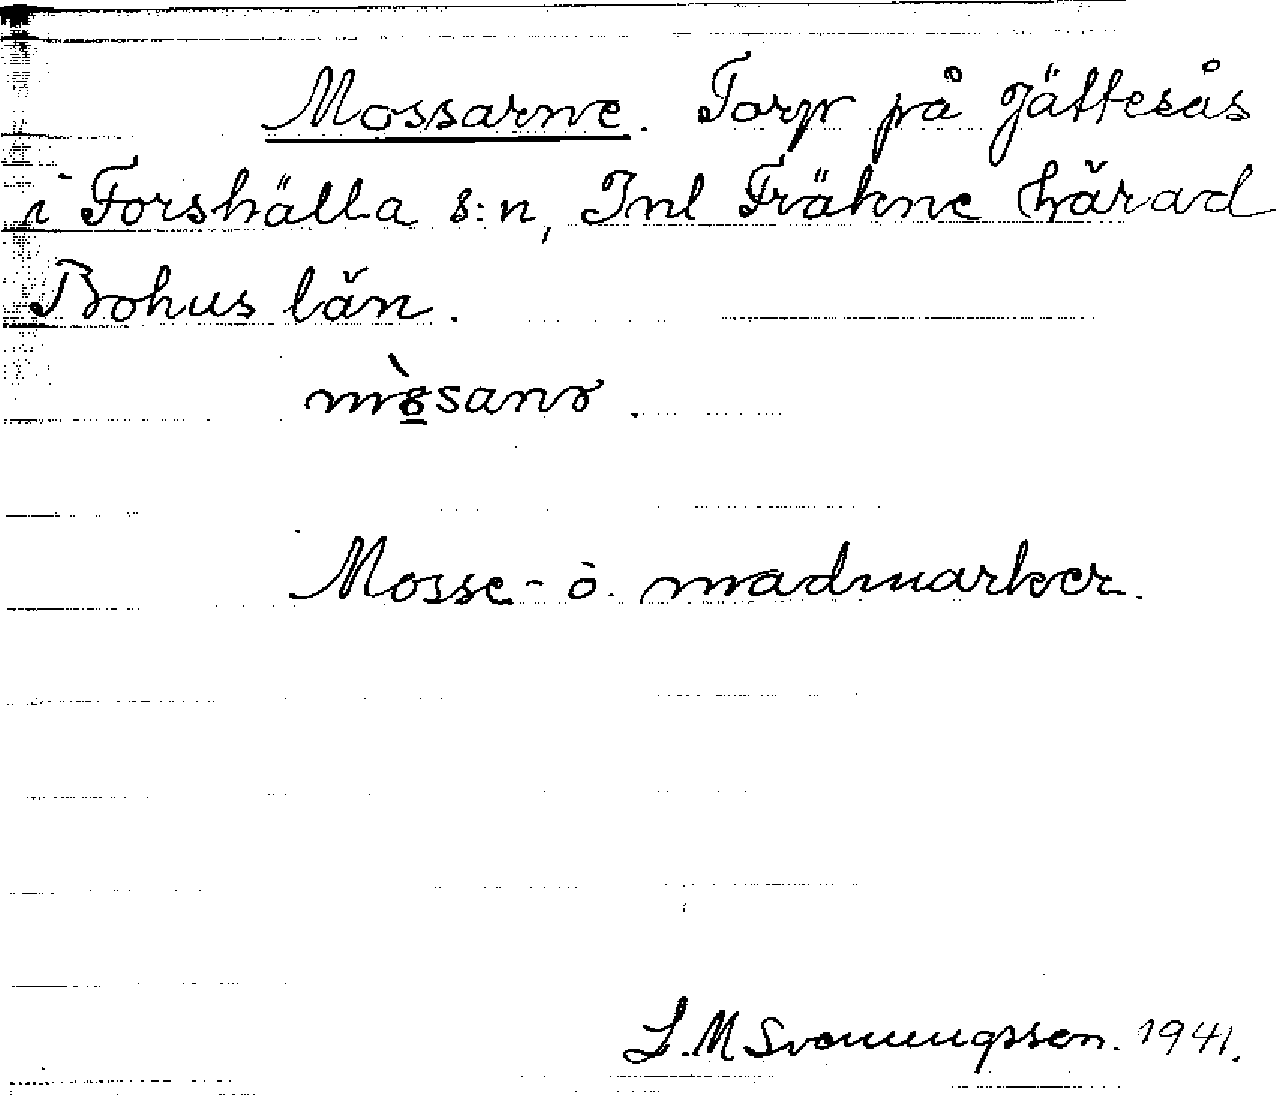 Mossarne. Torp på Jättesås
i Forshälla s:n, Inl Fräkne härad
Bohus län.
Mosse- o. madmarker.
L. M Svenungsson. 1941.